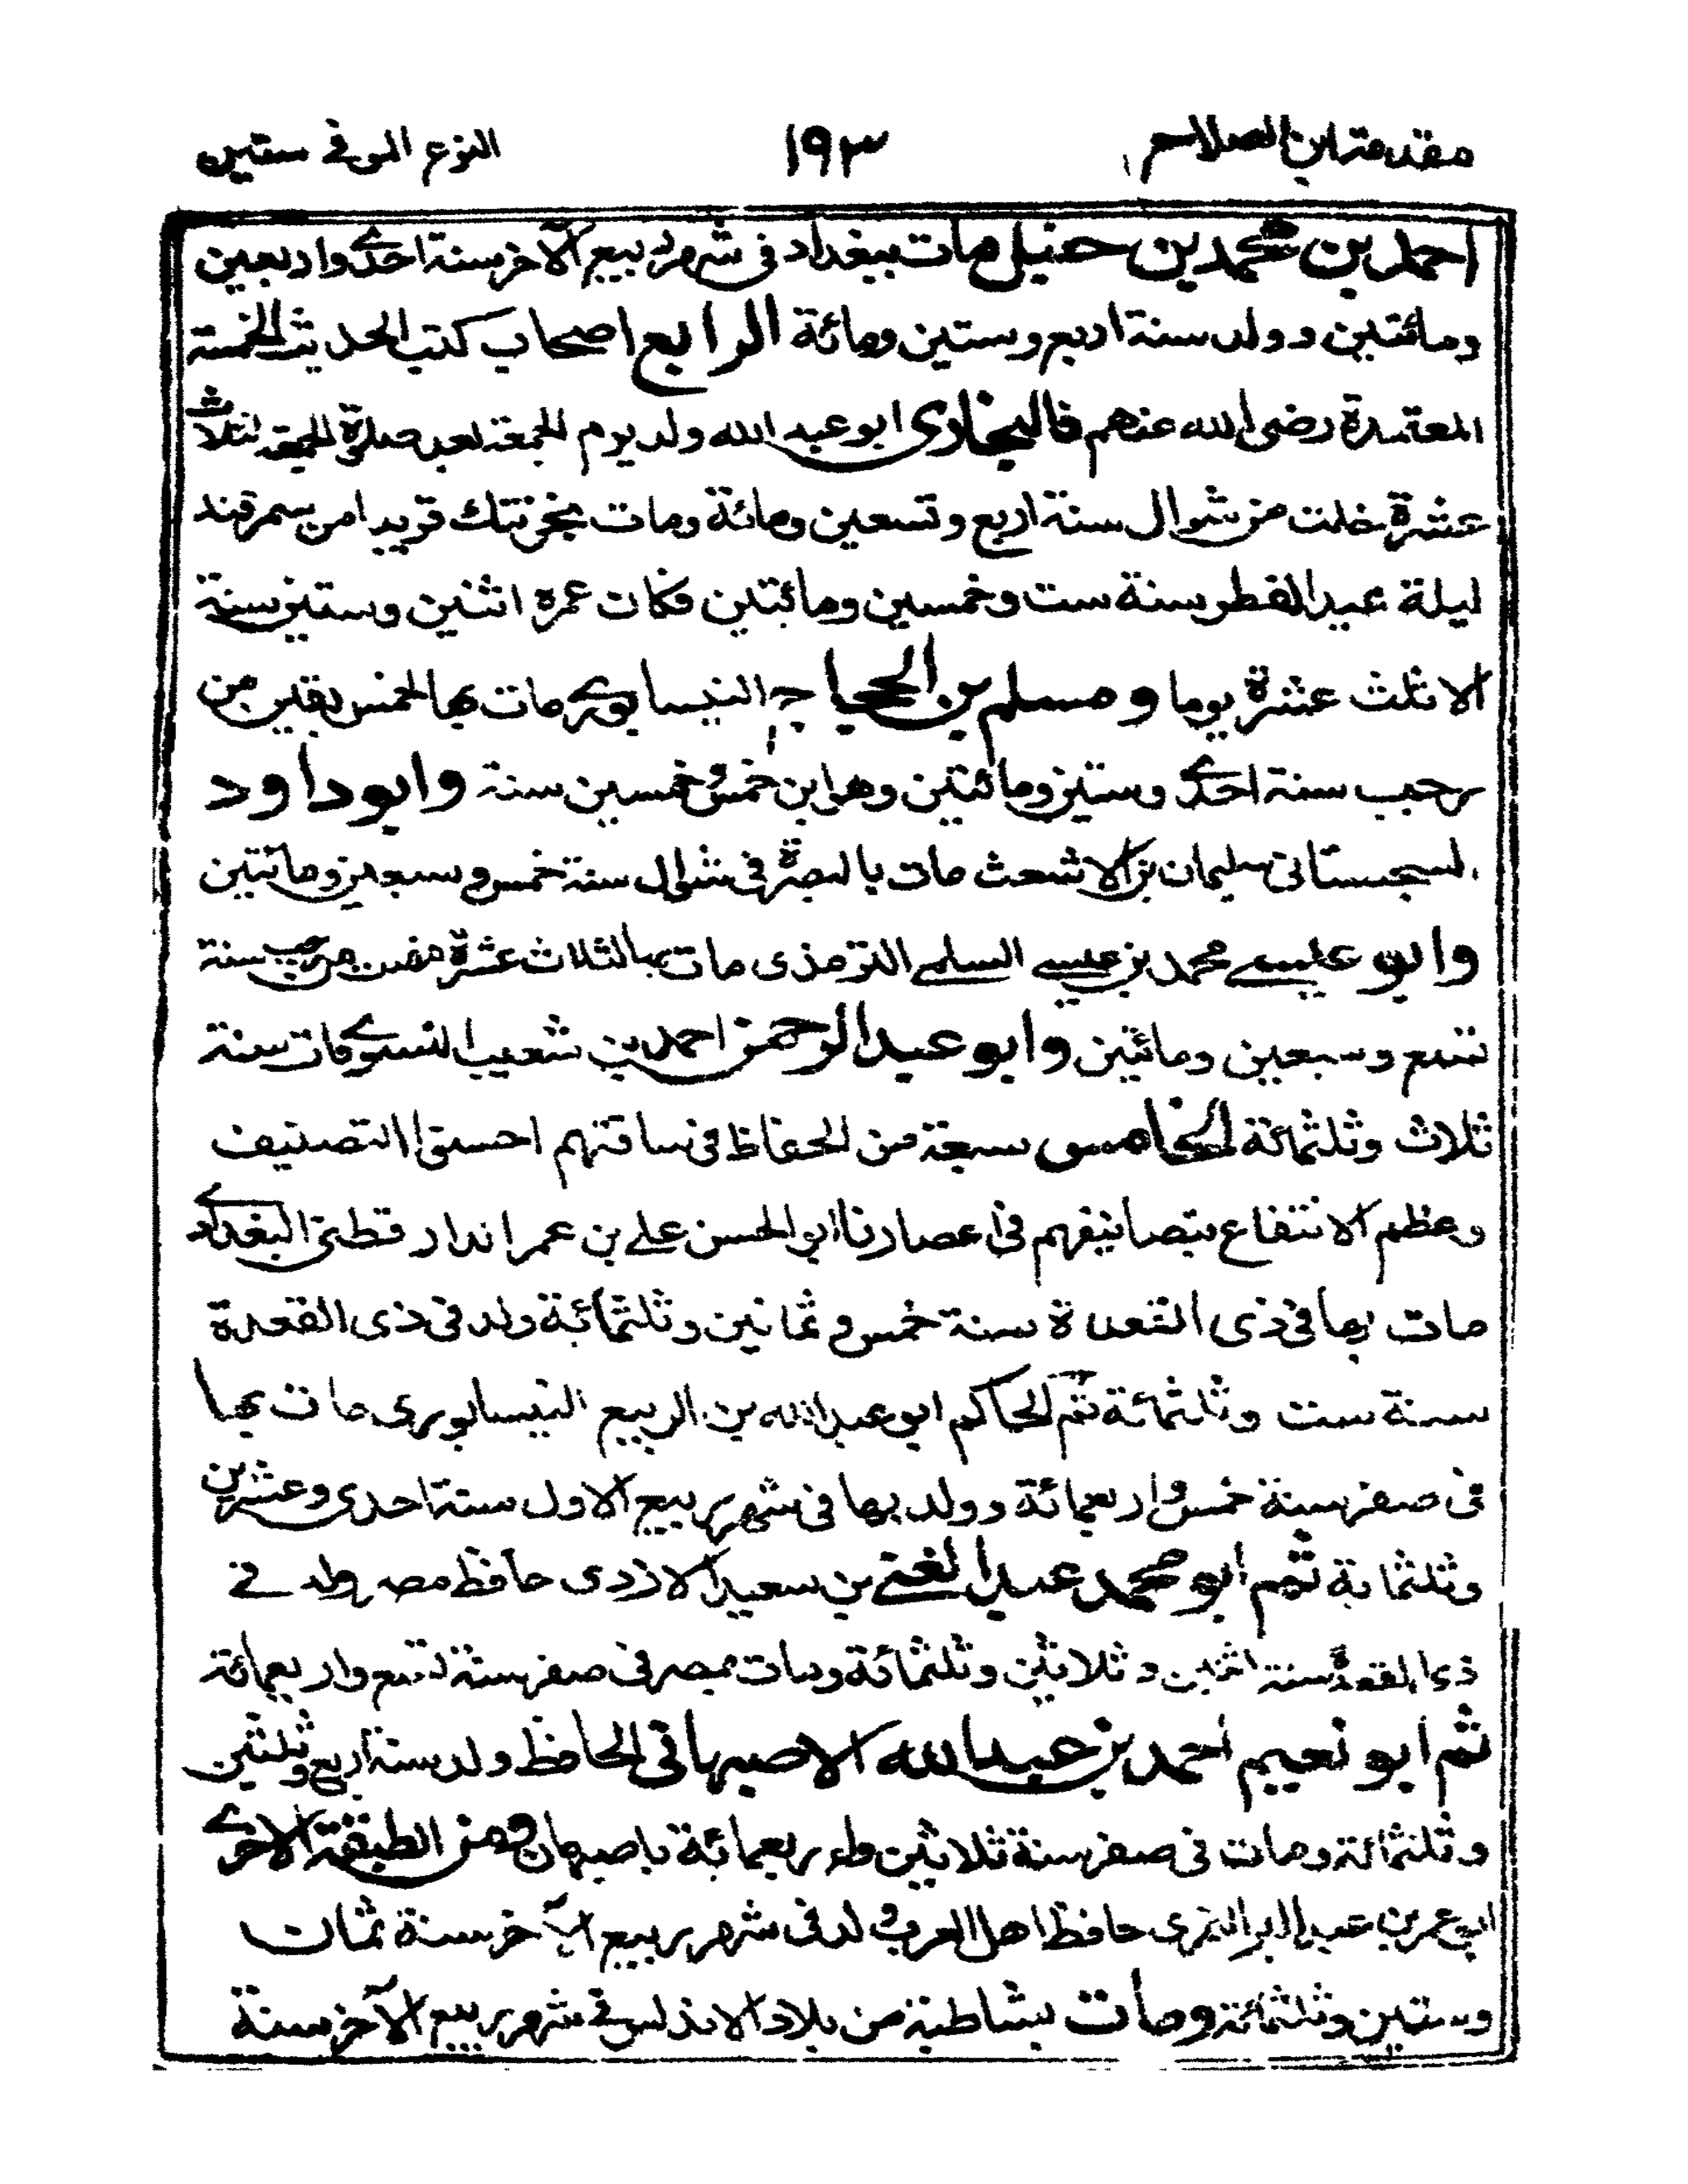 مقدمة ابن الصلاح ١٩٣ النوع الموفى ستين
احمد بن محمد بن حنبل مات ببغداد فى شهر ربيع الآخر سنة احدى واربعين
ومائتين وولد سنة اربع وستين ومائة الرابع اصحاب كتب الحديث الخمسة
المعتمدة رضى الله عنهم فالبخارى ابو عبد الله ولد يوم الجمعة بعد صلوة الجمعة لثلاث
عشرة خلت من شوال سنة اربع وتسعين ومائة ومات بخرتنك قريبا من سمرقند
ليلة عيد الفطر سنة ست وخمسين ومائتين فكان عمره اثنين وستين سنة
الا ثلث عشرة يوما ومسلم بن الحجاج النيسابورى مات بها لخمس بقين من
رجب سنة احدى وستين ومائتين وهو ابن خمس وخمسين سنة وابو داود
السجستانى سليمان بن الاشعث مات بالبصرة فى شوال سنة خمس وسبعين ومائتين
وابو عيسى محمد بن عيسى السلمى الترمذى مات بها لثلاث عشرة مضت من رجب سنة
تسع وسبعين ومائتين وابو عبد الرحمن احمد بن شعيب النسوى مات سنة
ثلاث وثلثمائة الخامس سبعة من الحفاظ فى ساقتهم احسنوا التصنيف
وعظم الانتفاع بتصانيفهم فى اعصارنا ابو الحسن على بن عمر الدارقطنى البغدادى
مات بها فى ذى القعدة سنة خمس وثمانين وثلثمائة ولد فى ذى القعدة
سنة ست وثلثمائة ثم الحاكم ابو عبد الله بن الربيع النيسابورى مات بها
فى صفر سنة خمس واربعمائة وولد بها فى شهر ربيع الاول سنة احدى وعشرين
وثلثمائة ثم ابو محمد عبد الغنى بن سعيد الازدى حافظ مصر ولد فى
ذى القعدة سنة اثنين وثلاثين وثلثمائة ومات بمصر فى صفر سنة تسع واربعمائة
ثم ابو نعيم احمد بن عبد الله الاصبهانى الحافظ ولد سنة اربع وثلثين
وثلثمائة ومات فى صفر سنة ثلاثين واربعمائة باصبهان ومن الطبقة الاخرى
ابو عمر بن عبد البر النمرى حافظ اهل المغرب ولد فى شهر ربيع الآخر سنة ثمان
وستين وثلثمائة ومات بشاطبة من بلاد الاندلس فى شهر ربيع الآخر سنة